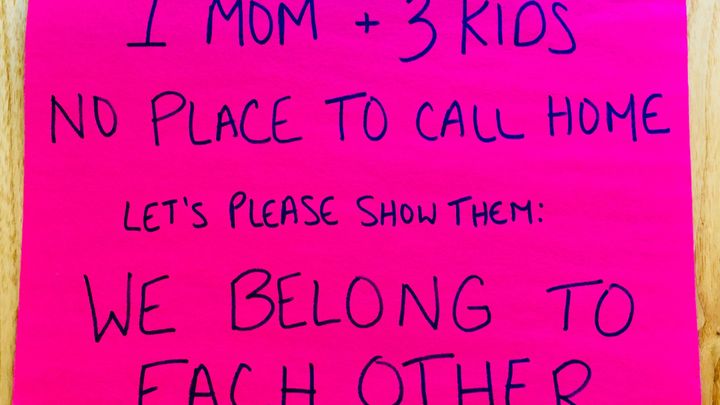 1 MOM + 3 KIDS
NO PLACE TO CALL HOME
LET'S PLEASE SHOW THEM:
WE BELONG TO
EACH OTHER